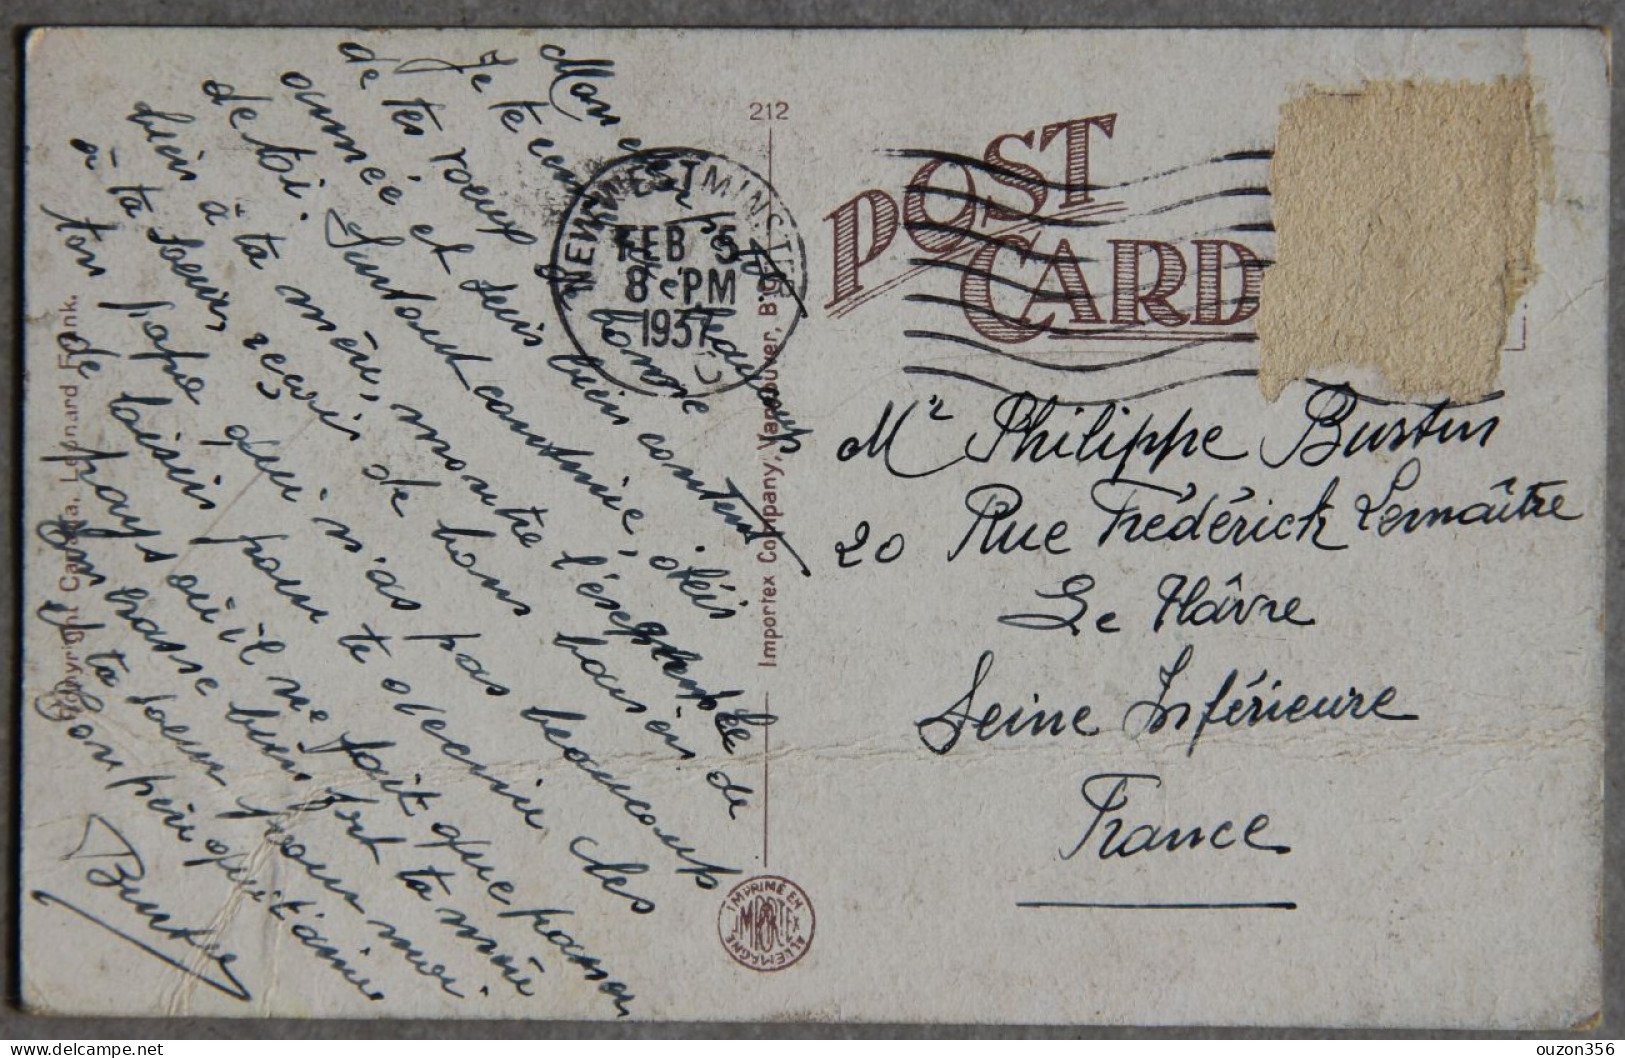 Mon cher petit
Je te remercie beaucoup
de tes voeux de bonne
année et suis bien content
de toi. Surtout continue, obéis
bien à ta mère, montre l'exemple
à ta soeur, reçois de bons baisers de
ton papa qui n'as pas beaucoup
de loisirs pour te decrire les
pays où il ne fait que passer
Embrasse bien fort ta mère
et ta soeur pour moi.
Ton père qui t'aime
Bustin
Copyright Canada. Leonard Frank.
212
Importex Company, Vancouver, B.C.
IMPRIMÉ EN ALLEMAGNE
IMPORTEX
NEW WESTMINSTER
FEB 5
8 PM
1937
POST
CARD
Mr Philippe Bustin
20 Rue Frédérick Lemaître
Le Hâvre
Seine Inférieure
France
ouzon356